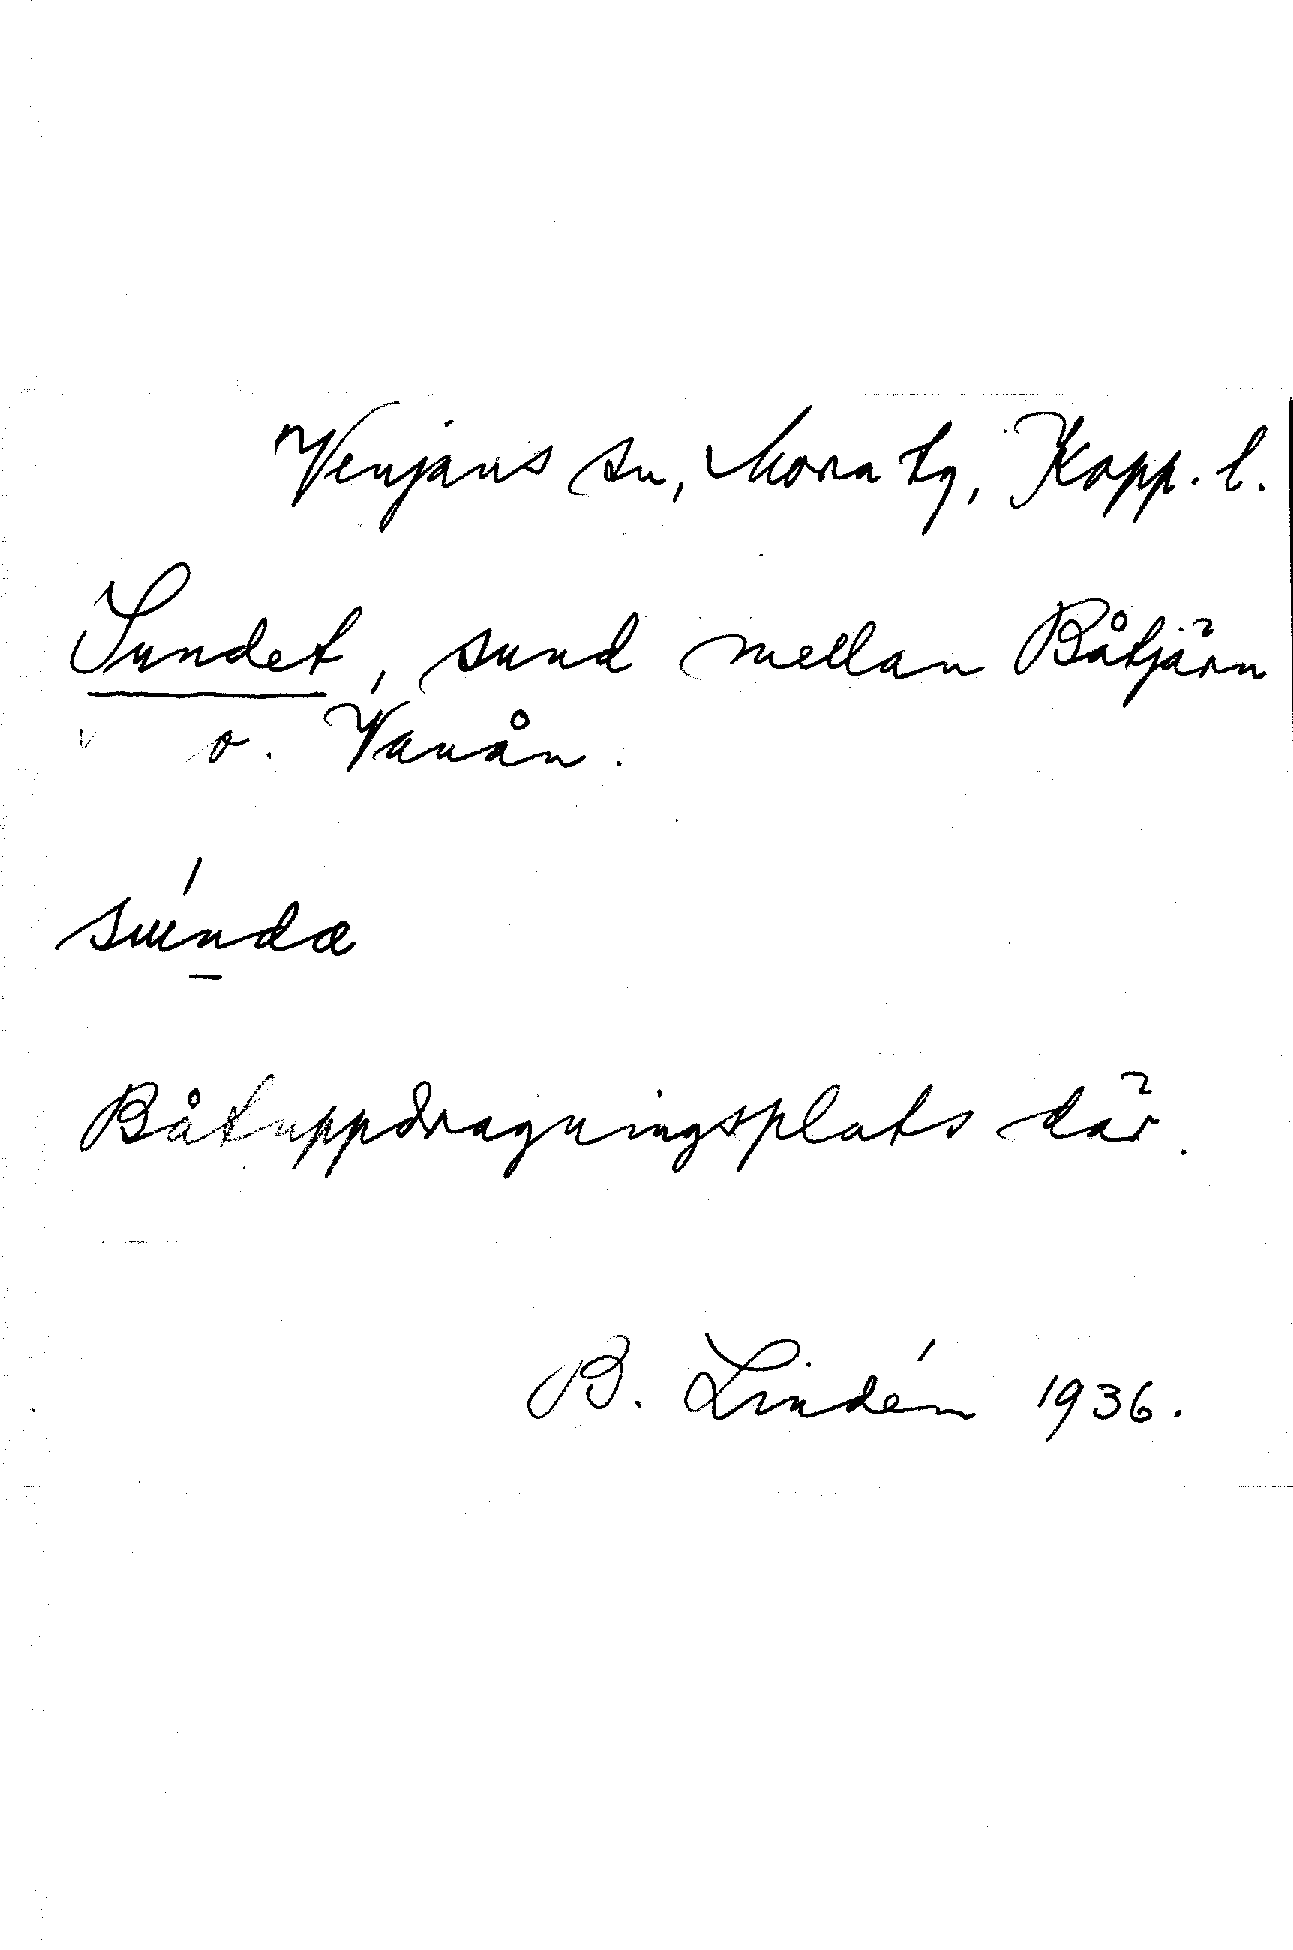 Venjans sn, Mora tg, Kopp. l.
Sundet, sund mellan Båtjärn
v o. Vanån.
Båtuppdragningsplats där.
B. Lindén 1936.